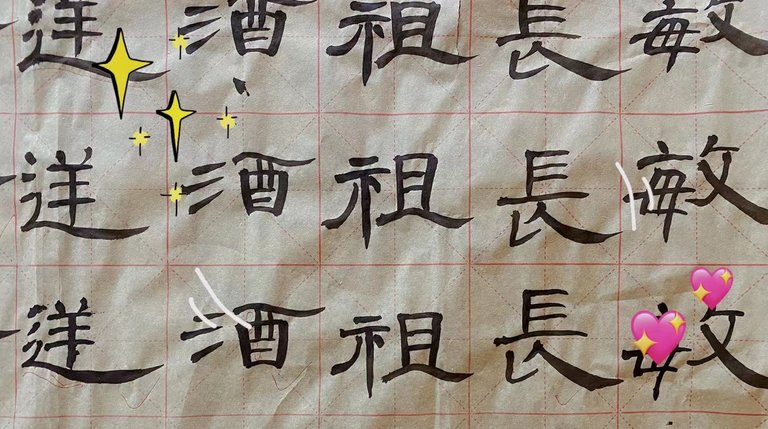 酒祖長敏
酒祖長敏
酒祖長敏